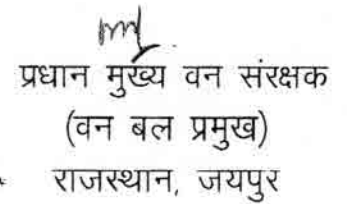 प्रधान मुख्य वन संरक्षक
(वन बल प्रमुख)
राजस्थान, जयपुर